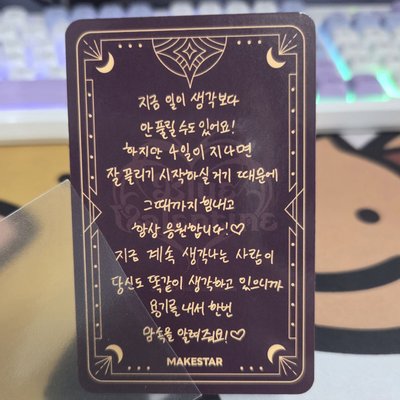 지금 일이 생각보다
안 풀릴 수도 있어요!
하지만 4일이 지나면
잘 풀리기 시작하실거기 때문에
그때까지 힘내고
항상 응원합니다!♡
지금 계속 생각나는 사람이
당신도 똑같이 생각하고 있으니까
용기를 내서 한번
안속을 알려줘요!♡
MAKESTAR